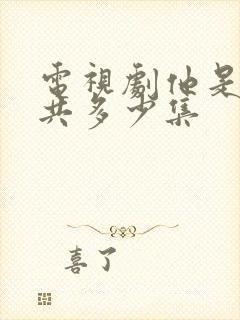 電視劇他是
共多少集
喜了